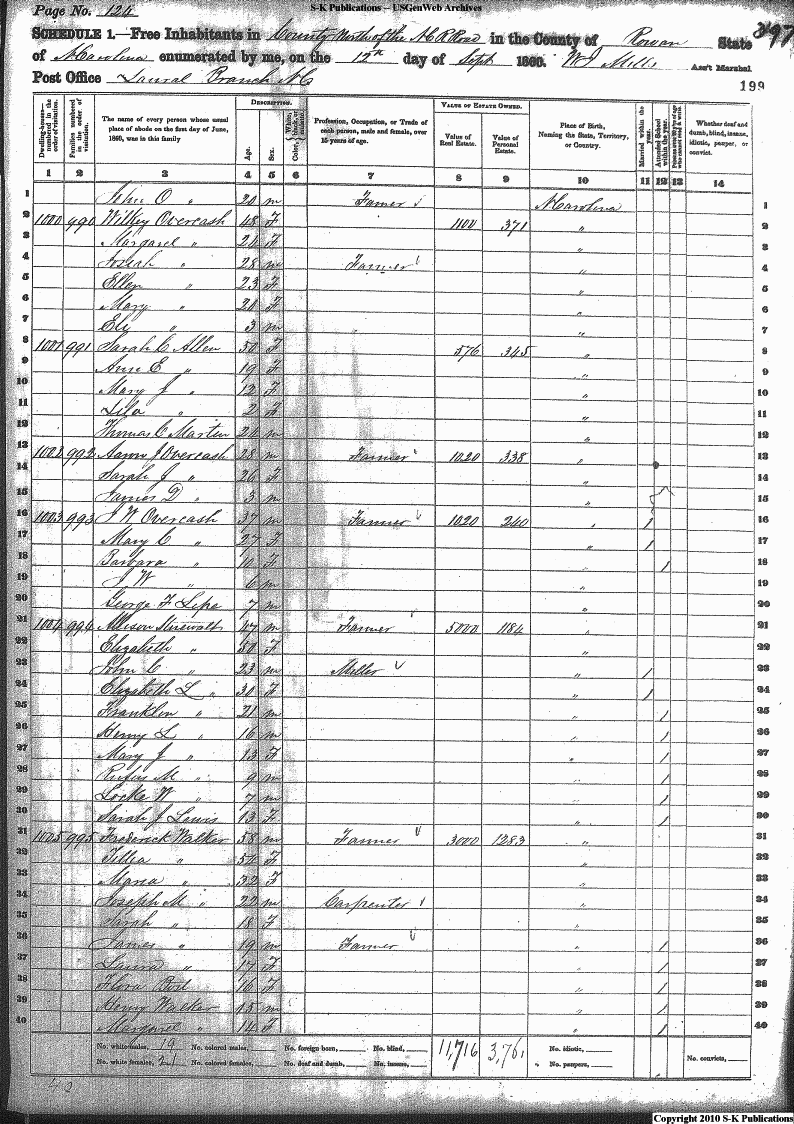 S-K Publications – USGenWeb Archives
Page No. 124
SCHEDULE 1.—Free Inhabitants in County North of the N C R Road in the County of Rowan State 397
of N Carolina enumerated by me, on the 12th day of Sept 1860. W J Mills Ass't Marshal.
Post Office Laural Branch N C 199
Dwelling-houses—numbered in the order of visitation. Families numbered in the order of visitation. The name of every person whose usual place of abode on the first day of June, 1860, was in this family DESCRIPTION. Age. Sex. Color, White, black, or mulatto. Profession, Occupation, or Trade of each person, male and female, over 15 years of age. VALUE OF ESTATE OWNED. Value of Real Estate. Value of Personal Estate. Place of Birth, Naming the State, Territory, or Country. Married within the year. Attended School within the year. Persons over 20 y'rs of age who cannot read & write. Whether deaf and dumb, blind, insane, idiotic, pauper, or convict.
1 2 3 4 5 6 7 8 9 10 11 12 13 14
1 John O " 20 m Farmer N Carolina 1
2 1000 990 Willey Overcash 48 F 1100 371 " 2
3 Margaret " 20 F " 3
4 Josiah " 28 m Farmer " 4
5 Ellen " 23 F " 5
6 Mary " 20 F " 6
7 Ely " 3 m " 7
8 1001 991 Sarah C Allen 50 F 576 345 " 8
9 Ann E " 19 F " 9
10 Mary J " 12 F " 10
11 Lila " 2 F " 11
12 Thomas C Martin 24 m " 12
13 1002 992 Aaron J Overcash 28 m Farmer 1020 338 " 13
14 Sarah J " 26 F " 14
15 James D " 3 m " 15
16 1003 993 J W Overcash 37 m Farmer 1020 240 " / 16
17 Mary C " 27 F " / 17
18 Barbara " 10 F / 18
19 J W " 6 m " 19
20 George F 7 m " 20
21 1004 994 47 m Farmer 5000 1184 " 21
22 Elizabeth " 50 F " 22
23 John C " 23 m Miller " / 23
24 Elizabeth L " 30 F " / 24
25 Franklin " 21 m " / 25
26 Henry L " 16 m " / 26
27 Mary J " 13 F " / 27
28 Rufus M " 9 m " / 28
29 Locke W " 7 m " / 29
30 Sarah J Lewis 13 F " / 30
31 1005 995 Frederick Walker 58 m Farmer 3000 1283 " 31
32 " 54 F " 32
33 Maria " 32 F " 33
34 Joseph M " 22 m Carpenter " 34
35 Sarah " 18 F " 35
36 James " 19 m Farmer " / 36
37 Laura " 17 F " / 37
38 Flora 16 F " / 38
39 Henry Walker 15 m " / 39
40 Margaret " 14 F " / 40
No. white males, 19 No. colored males, No. foreign born, No. blind, 11,716 3,761 No. idiotic, No. convicts,
No. white females, 21 No. colored females, No. deaf and dumb, No. insane, " No. paupers,
Copyright 2010 S-K Publications